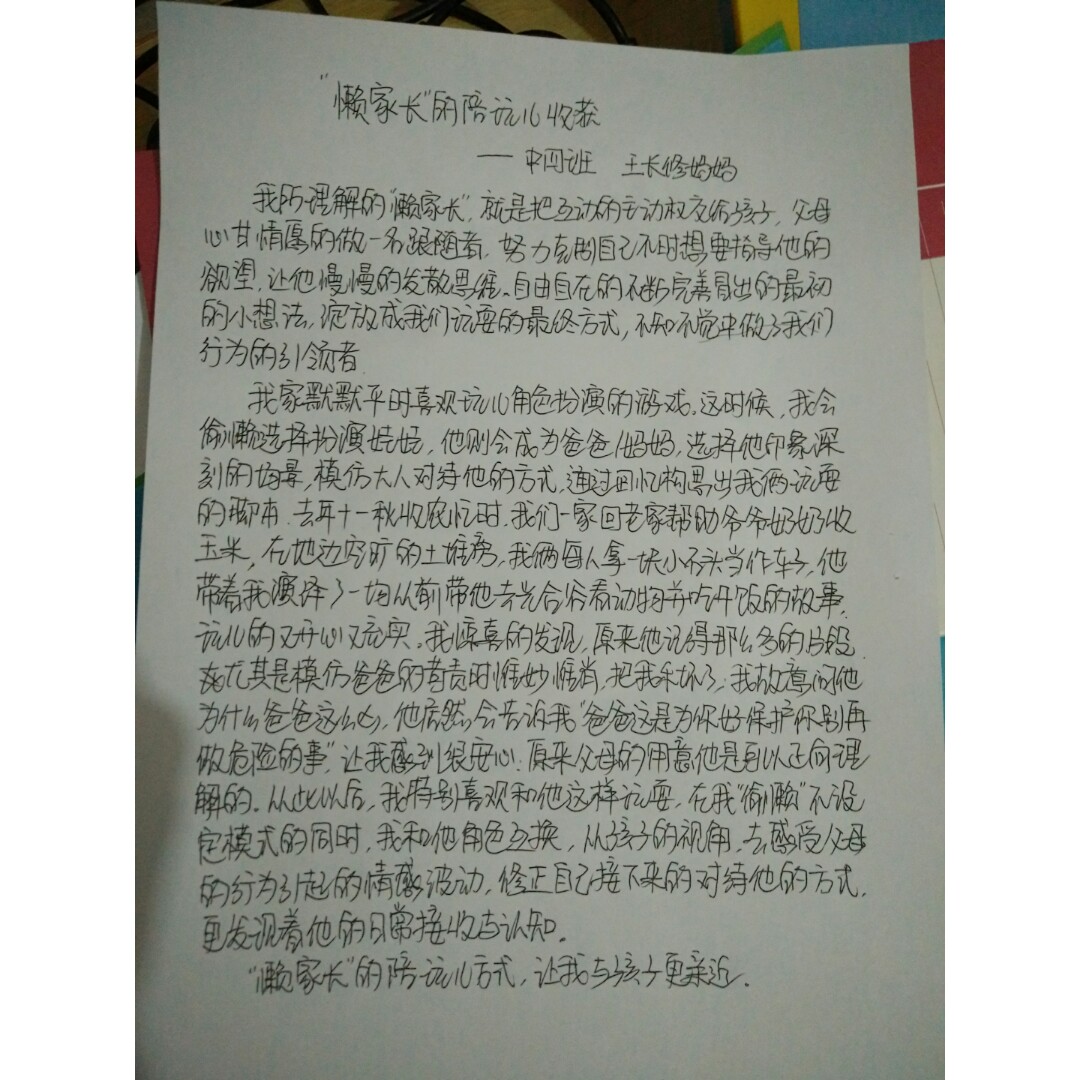 “懒家长”的陪玩儿收获
——中四班 王长修妈妈
我所理解的“懒家长”，就是把互动的主动权交给孩子，父母
心甘情愿的做一名跟随者，努力克制自己不时想要指导他的
欲望，让他慢慢的发散思维、自由自在的不断完善冒出的最初
的小想法，绽放成我们玩耍的最终方式，不知不觉中做了我们
行为的引领者
我家默默平时喜欢玩儿角色扮演的游戏，这时候，我会
偷懒选择扮演娃娃，他则会成为爸爸/妈妈，选择他印象深
刻的场景，模仿大人对待他的方式，通过回忆构思出我俩玩耍
的脚本。去年十一秋收农忙时，我们一家回老家帮助爷爷奶奶收
玉米，在地边空旷的土堆旁，我俩每人拿一块小石头当作车子，他
带着我演译了一场从前带他去光合谷看动物并吃午饭的故事，
玩儿的又开心又充实。我惊喜的发现，原来他记得那么多的片段
尤其是模仿爸爸的苛责时惟妙惟肖，把我乐坏了，我故意问他
为什么爸爸这么凶，他居然会告诉我“爸爸这是为你好保护你别再
做危险的事”让我感到很安心：原来父母的用意他是可以正向理
解的。从此以后，我特别喜欢和他这样玩耍，在我“偷懒”不设
定模式的同时，我和他角色互换，从孩子的视角，去感受父母
的行为引起的情感波动，修正自己接下来的对待他的方式，
更发现着他的日常接收与认知。
“懒家长”的陪玩儿方式，让我与孩子更亲近。